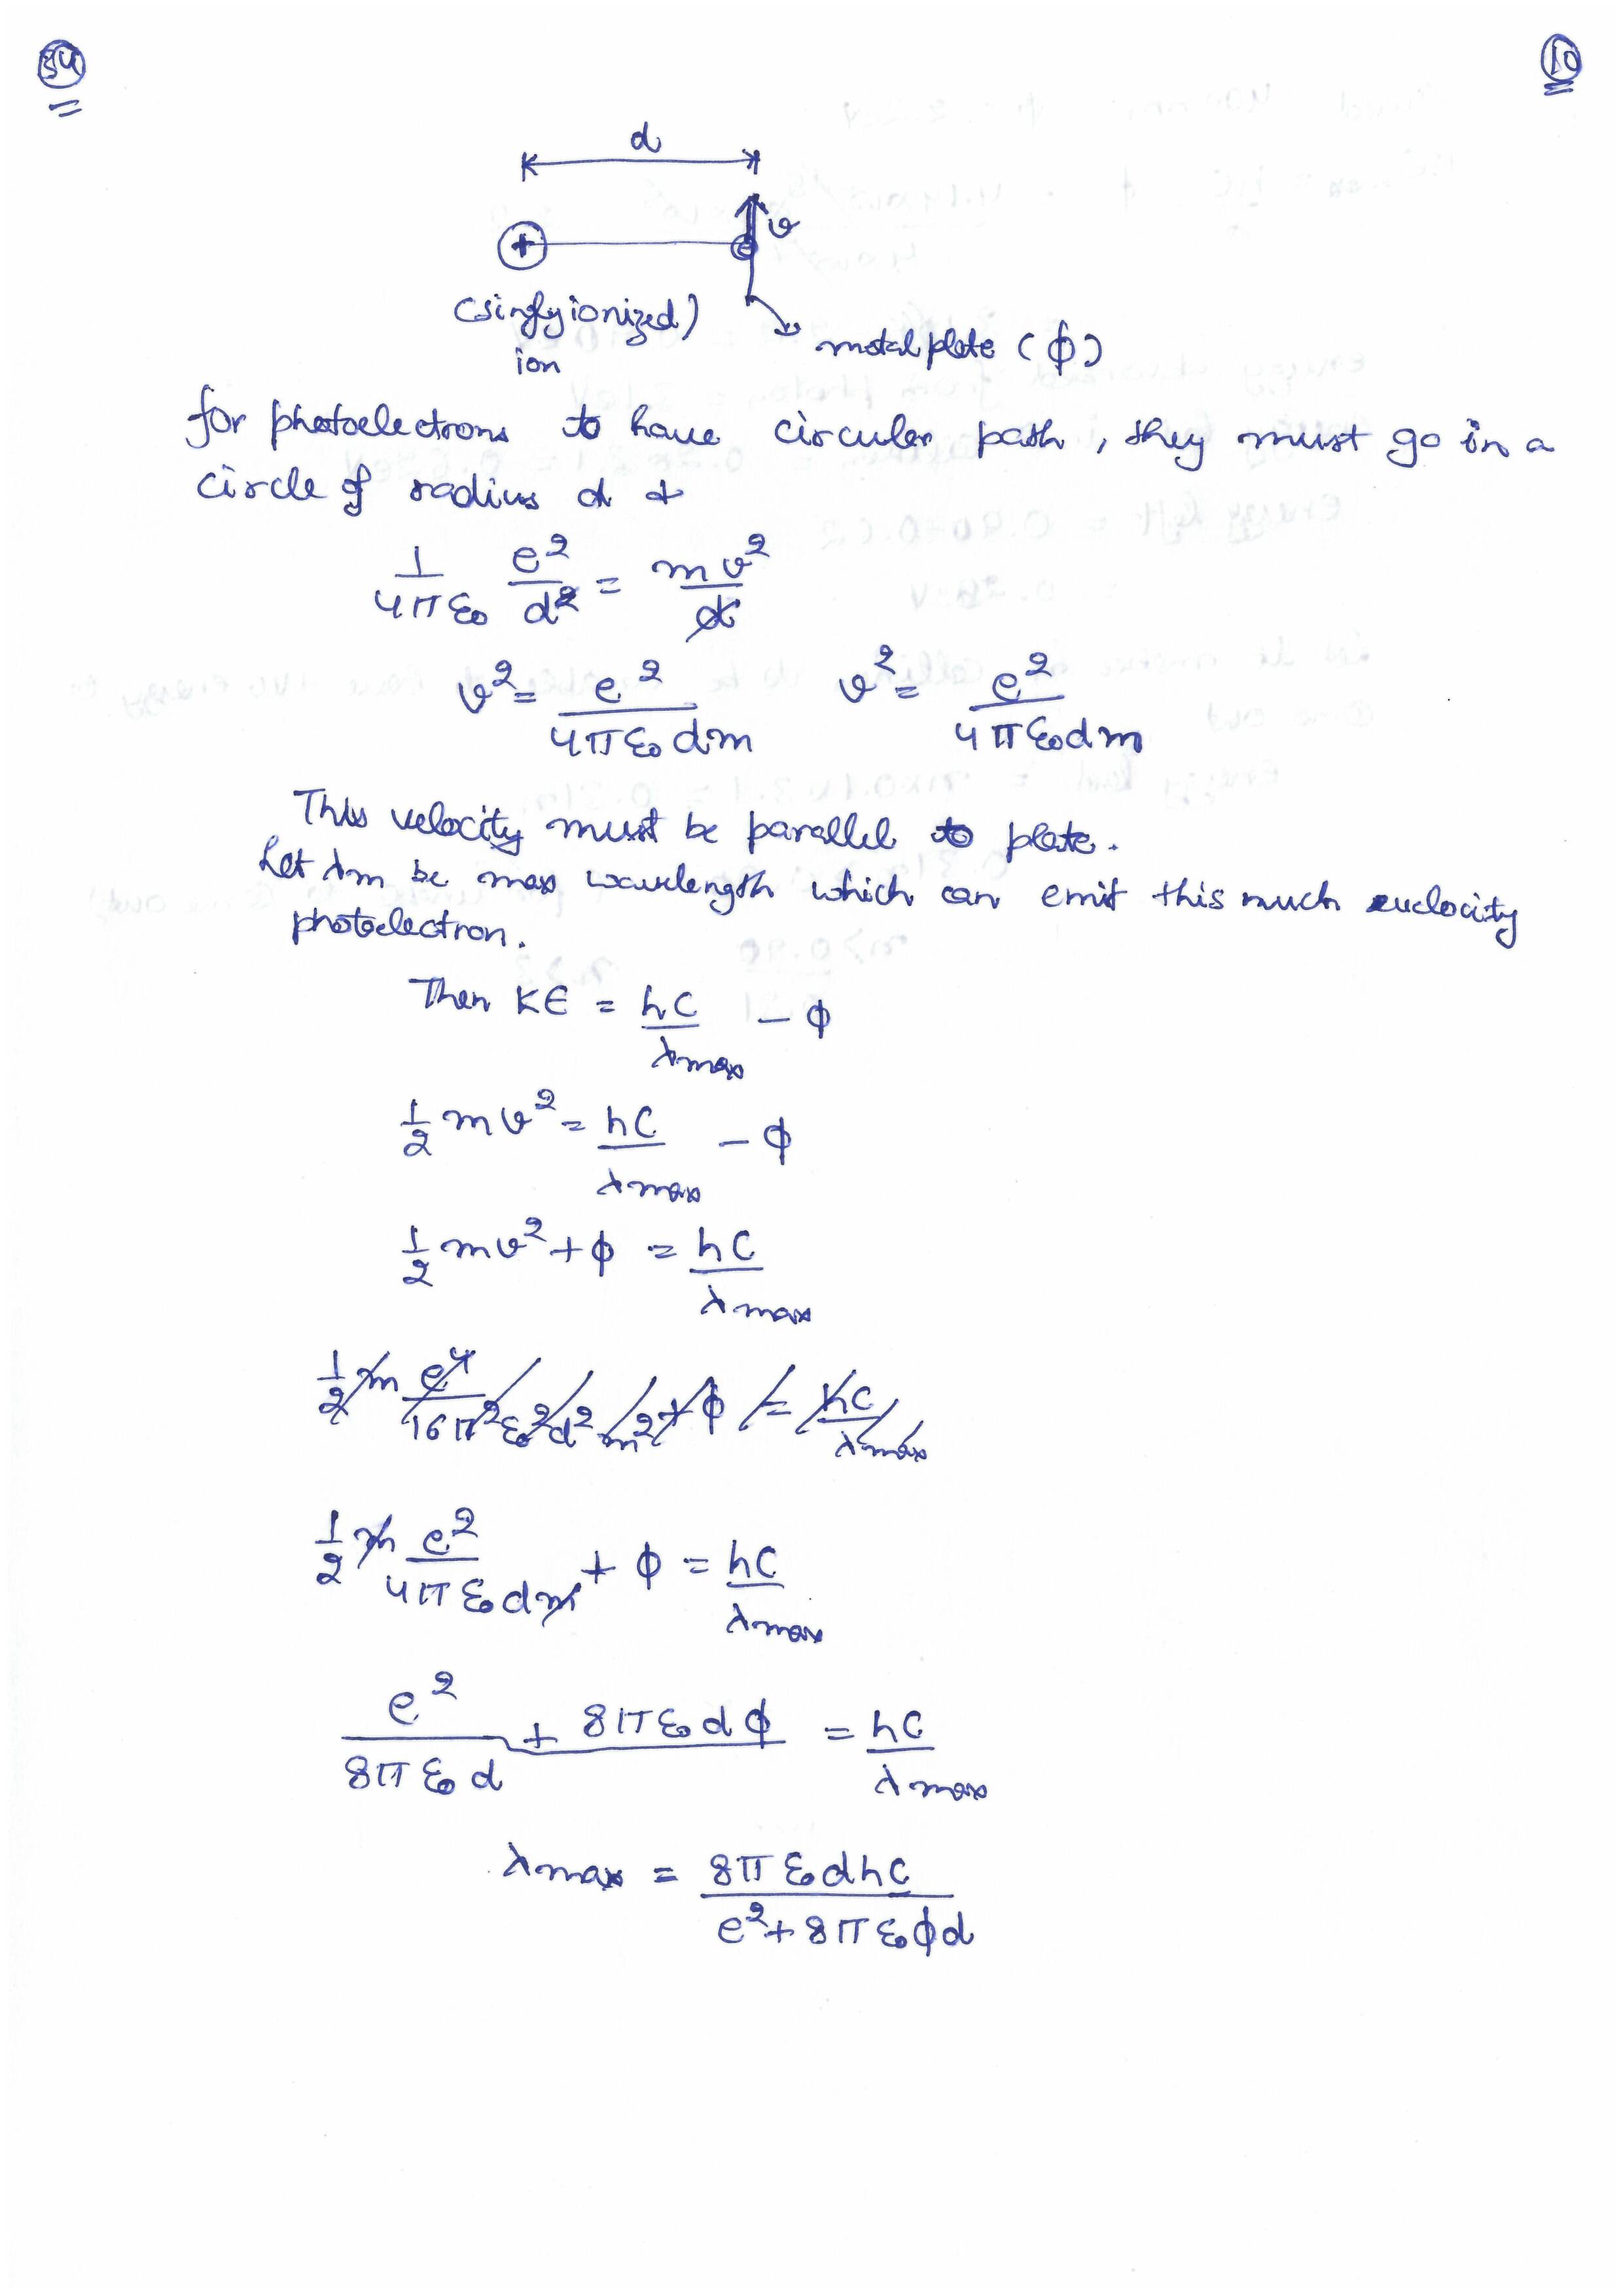 34
10
d
+
e
v
(singly ionized)
ion
metal plate (φ)
for photoelectrons to have circular path, they must go in a
circle of radius d &
1/4πε₀ e²/d² = mv²/d
v² = e²/4πε₀dm v² = e²/4πε₀dm
This velocity must be parallel to plate.
Let λm be max wavelength which can emit this much velocity
photoelectron.
Then KE = hc/λmax - φ
1/2 mv² = hc/λmax - φ
1/2 mv² + φ = hc/λmax
1/2 m e⁴/16π²ε₀²d²m² + φ = hc/λmax
1/2 m e²/4πε₀dm + φ = hc/λmax
e² + 8πε₀dφ / 8πε₀d = hc/λmax
λmax = 8πε₀dhc / e² + 8πε₀φd